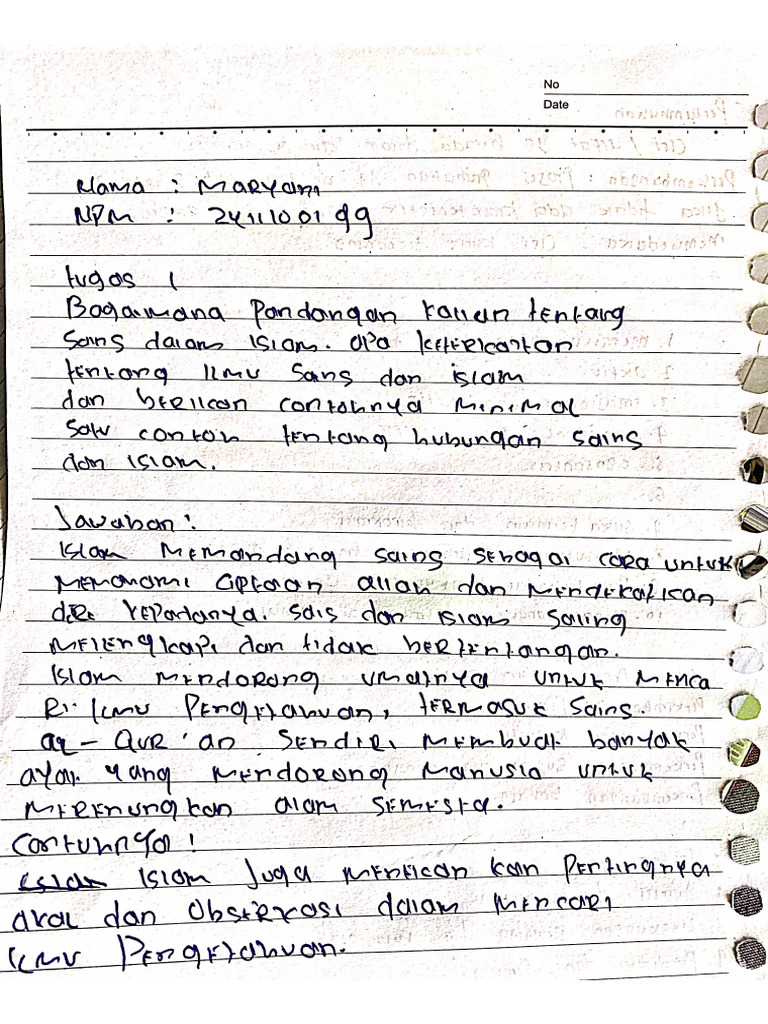 No
Date
Nama : Maryani
NPM : 2411100199
tugas 1
Bagaimana Pandangan Kalian tentang
Sains dalam Islam. apa keterkaitan
tentang ilmu Sans dan islam
dan berikan contohnya minimal
satu contoh tentang hubungan sains
dan islam.
Jawaban :
Islam memandang sains sebagai cara untuk
memahami ciptaan allah dan mendekatkan
diri kepadanya. Sais dan islam saling
melengkapi dan tidak bertentangan.
Islam mendorong umatnya untuk menca
ri ilmu Pengetahuan, termasuk Sains.
al-Qur'an Sendiri membuat banyak
ayat yang mendorong manusia untuk
merenungkan alam semesta.
Contohnya :
Islam Juga menekan kan Pentingnya
akal dan Observasi dalam mencari
ilmu Pengetahuan.